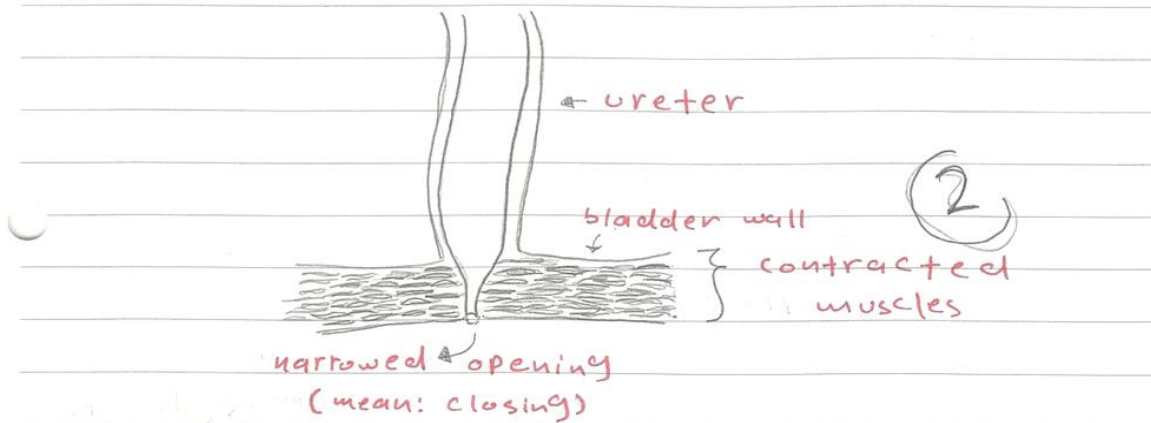 ureter
2
bladder wall
contracted
muscles
narrowed opening
(mean: closing)